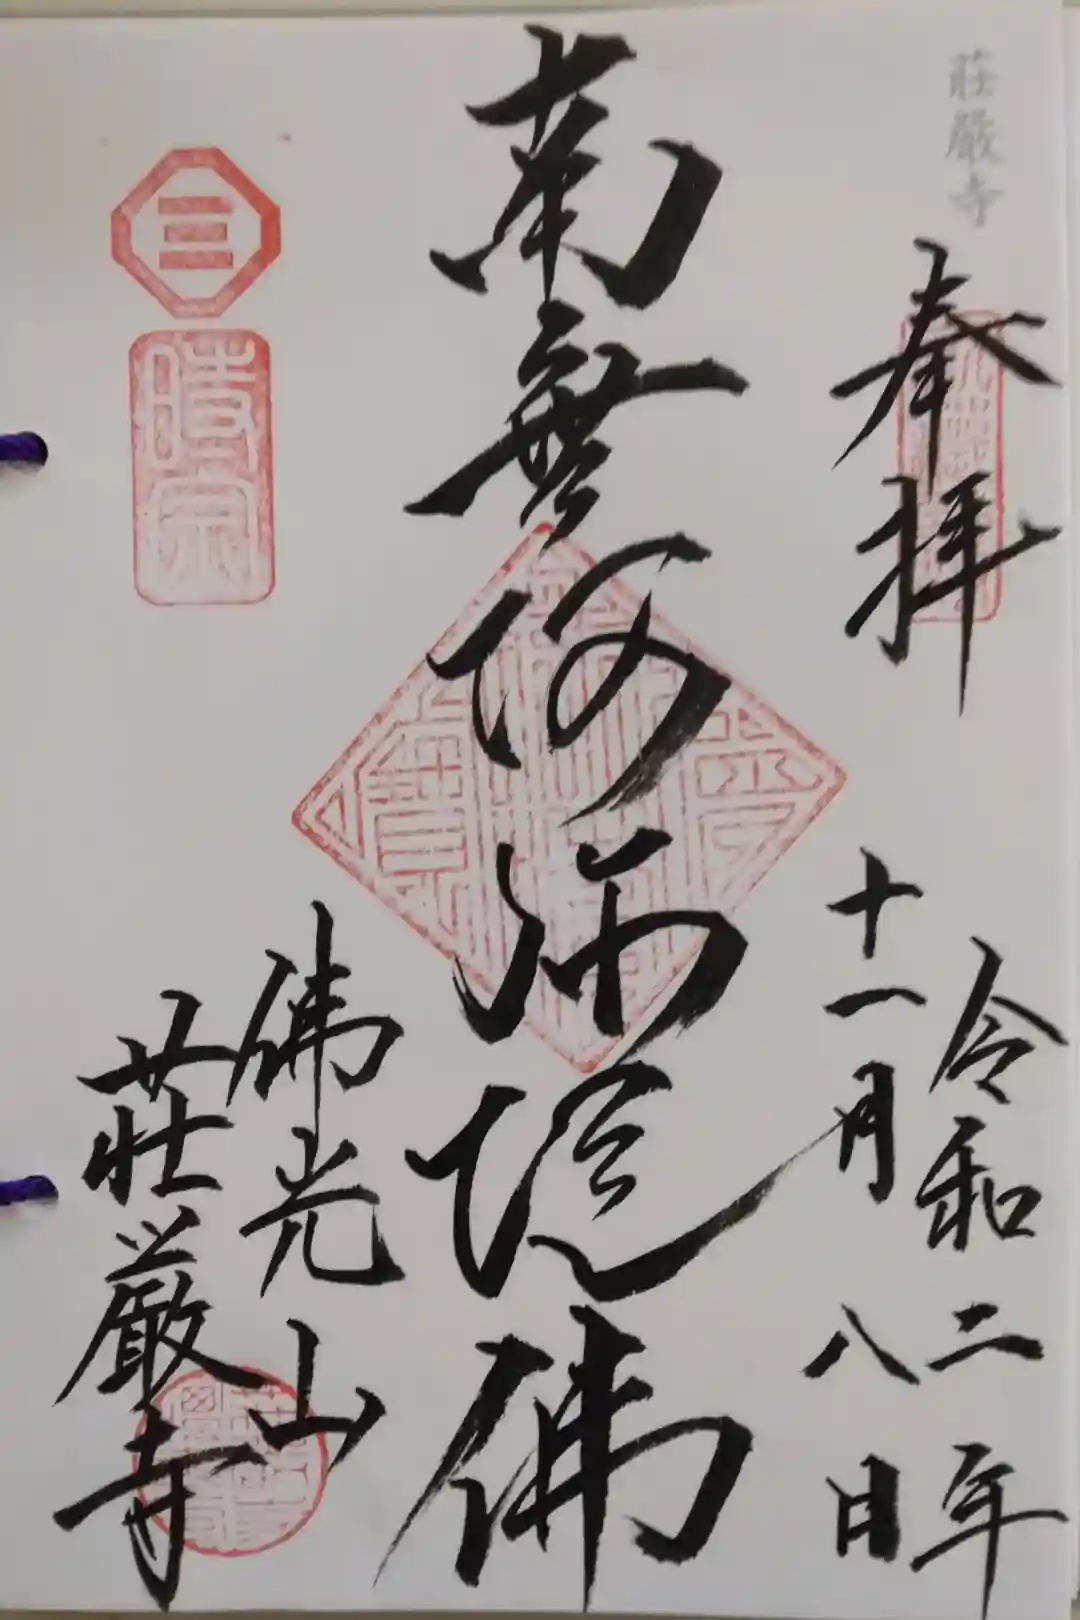 莊嚴寺
奉拝
令和二年
十一月八日
南無阿弥陀佛
佛光山
莊厳寺
三
時宗